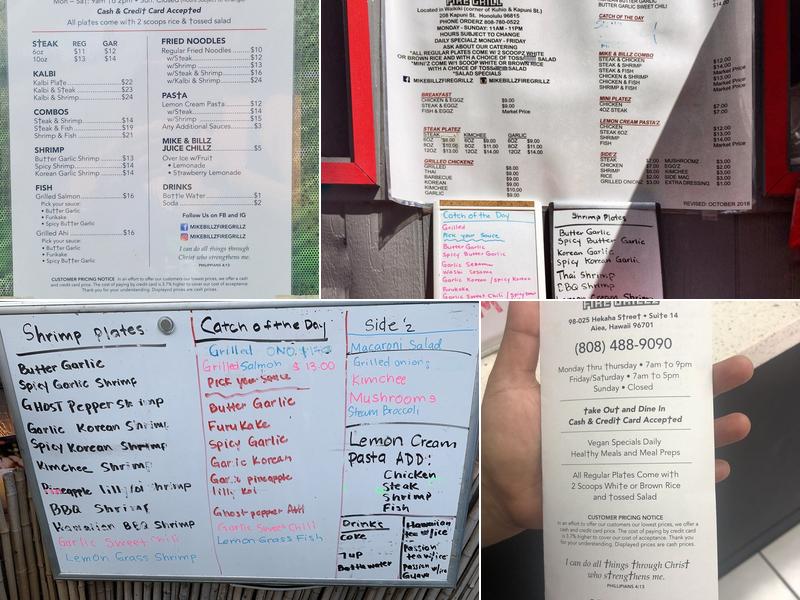 Cash & Credit Card Accepted
All plates come with 2 scoops rice & tossed salad
STEAK REG GAR
6oz $11 $12
10oz $13 $14
KALBI
Kalbi Plate $22
Kalbi & Steak $23
Kalbi & Shrimp $24
COMBOS
Steak & Shrimp $14
Steak & Fish $19
Shrimp & Fish $21
SHRIMP
Butter Garlic Shrimp $13
Spicy Shrimp $14
Korean Garlic Shrimp $14
FISH
Grilled Salmon $16
Pick your sauce:
• Butter Garlic
• Furikake
• Spicy Butter Garlic
Grilled Ahi $16
Pick your sauce:
• Butter Garlic
• Furikake
• Spicy Butter Garlic
FRIED NOODLES
Regular Fried Noodles $10
w/Steak $12
w/Shrimp $13
w/Steak & Shrimp $16
w/Kalbi & Shrimp $24
PASTA
Lemon Cream Pasta $12
w/Steak $14
w/Shrimp $15
Any Additional Sauces $3
MIKE & BILLZ
JUICE CHILLZ $5
Over Ice w/Fruit
• Lemonade
• Strawberry Lemonade
DRINKS
Bottle Water $1
Soda $2
Follow Us on FB and IG
MIKEBILLZFIREGRILLZ
MIKEBILLZFIREGRILLZ
I can do all things
through Christ
who strengthens me.
PHILIPPIANS 4:13
CUSTOMER PRICING NOTICE In an effort to offer our customers our lowest prices, we offer a cash
and credit card price. The cost of paying by credit card is 3.7% higher to cover our cost of acceptance.
Thank you for your understanding. Displayed prices are cash prices.
FIRE GRILL
Located in Waikiki (corner of Kuhio & Kapuni St.)
208 Kapuni St. Honolulu 96815
PHONE ORDERZ 808-780-0522
MONDAY - SUNDAY: 11AM - 11PM
HOURS SUBJECT TO CHANGE
DAILY SPECIALZ MONDAY - FRIDAY
ASK ABOUT OUR CATERING
*ALL REGULAR PLATES COME W/ 2 SCOOPZ WHITE
OR BROWN RICE AND WITH A CHOICE OF TOSS SALAD
*MINI'Z COME W/1 SCOOP WHITE OR BROWN RICE
WITH A CHOICE OF TOSS SALAD
*SALAD SPECIALS
MIKEBILLZFIREGRILLZ MIKEBILLZFIREGRILLZ
BREAKFAST
CHICKEN & EGGZ $9.00
SPAM & EGGZ $9.00
FISH & EGGZ Market Price
STEAK PLATEZ
STEAK KIMCHEE GARLIC
6OZ $8.00 6OZ $9.00 6OZ $9.00
8OZ $10.00 8OZ $11.00 8OZ $11.00
12OZ $13.00 12OZ $14.00 12OZ $14.00
GRILLED CHICKENZ
GRILLED $8.00
THAI $9.00
BARBECUE $9.00
KOREAN $9.00
KIMCHEE $9.00
GARLIC $9.00
BUTTER SWEET CHILI
CATCH OF THE DAY
MIKE & BILLZ COMBO
STEAK & CHICKEN $12.00
STEAK & SHRIMP $14.00
STEAK & FISH Market Price
CHICKEN & SHRIMP $14.00
CHICKEN & FISH Market Price
SHRIMP & FISH Market Price
MINI PLATEZ
CHICKEN
STEAK 4OZ
LEMON CREAM PASTA'Z
CHICKEN $12.00
STEAK 6OZ $13.00
SHRIMP $14.00
FISH Market Price
SIDE'Z
STEAK MUSHROOMZ $3.00
CHICKEN EGGZ $2.00
SHRIMP KIMCHEE $2.00
RICE SIDE MAC $3.00
GRILLED ONIONZ EXTRA DRESSING $1.00
REVISED: OCTOBER 2018
Catch of the Day
Grilled
Pick your Sauce
Butter Garlic
Spicy Butter Garlic
Garlic Sesame
Wasbi Sesame
Garlic Korean / Spicy Korean
Furukake
Garlic Sweet Chili / Spicy
Shrimp Plates
Butter Garlic
Spicy Butter Garlic
Korean Garlic
Spicy Korean Garlic
Thai Shrimp
BBQ Shrimp
Lemon Cream Shrimp
Shrimp Plates
Butter Garlic
Spicy Garlic Shrimp
GHOST Pepper Shrimp
Garlic Korean Shrimp
Spicy Korean Shrimp
Kimchee Shrimp
Pineapple lilikoi shrimp
BBQ Shrimp
Hawaiian BBQ Shrimp
Garlic Sweet Chili
Lemon Grass Shrimp
Catch of the Day
Grilled ONO
Grilled Salmon $13.00
Pick your Sauce
Butter Garlic
Furukake
Spicy Garlic
Garlic Korean
Garlic pineapple
lilly koi
Ghost pepper Ahi
Garlic Sweet Chili
Lemon Grass Fish
Side'z
Macaroni Salad
Grilled onions
Kimchee
Mushrooms
Steam Broccoli
Lemon Cream
Pasta ADD:
Chicken
Steak
Shrimp
Fish
Drinks
Coke
7up
Bottle water
Hawaiian
tea w/ice
Passion
tea w/ice
Passion w/ice
Guava
FIRE GRILLZ
98-025 Hekaha Street • Suite 14
Aiea, Hawaii 96701
(808) 488-9090
Monday thru Thursday • 7am to 9pm
Friday/Saturday • 7am to 5pm
Sunday • Closed
Take Out and Dine In
Cash & Credit Card Accepted
Vegan Specials Daily
Healthy Meals and Meal Preps
All Regular Plates Come with
2 Scoops White or Brown Rice
and tossed Salad
CUSTOMER PRICING NOTICE
In an effort to offer our customers our lowest prices, we offer a
cash and credit card price. The cost of paying by credit card
is 3.7% higher to cover our cost of acceptance. Thank you
for your understanding. Displayed prices are cash prices.
I can do all things through Christ
who strengthens me.
PHILLIPIANS 4:13